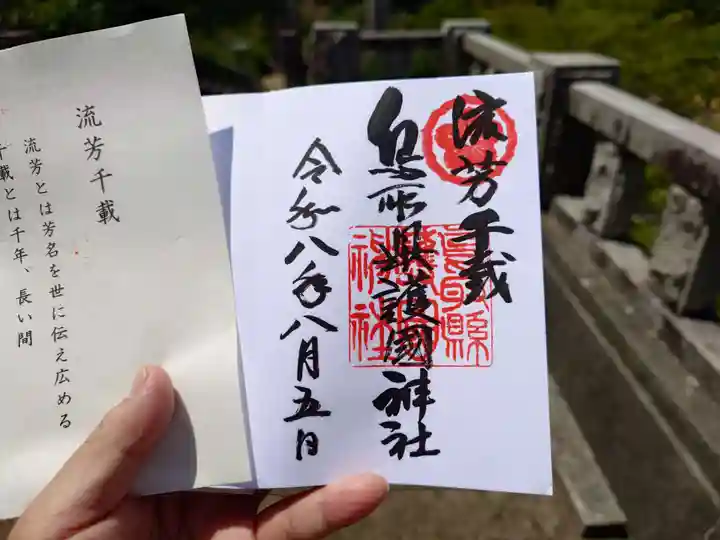 流芳千載
鳥取県護國神社
令和八年八月五日
流芳千載
流芳とは芳名を世に伝え広める
千載とは千年、長い間